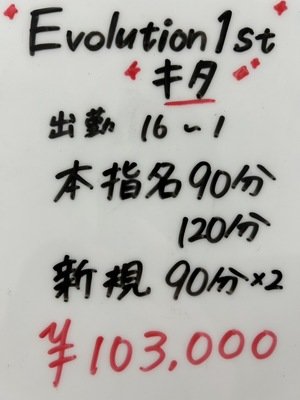 Evolution 1st
キタ
出勤 16~1
本指名 90分
120分
新規 90分×2
¥103,000